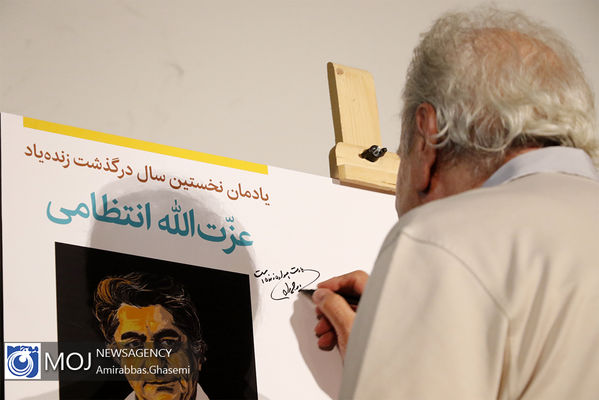 یادمان نخستین سال درگذشت زنده‌یاد
عزّت‌الله انتظامی
MOJ NEWSAGENCY
Amirabbas.Ghasemi